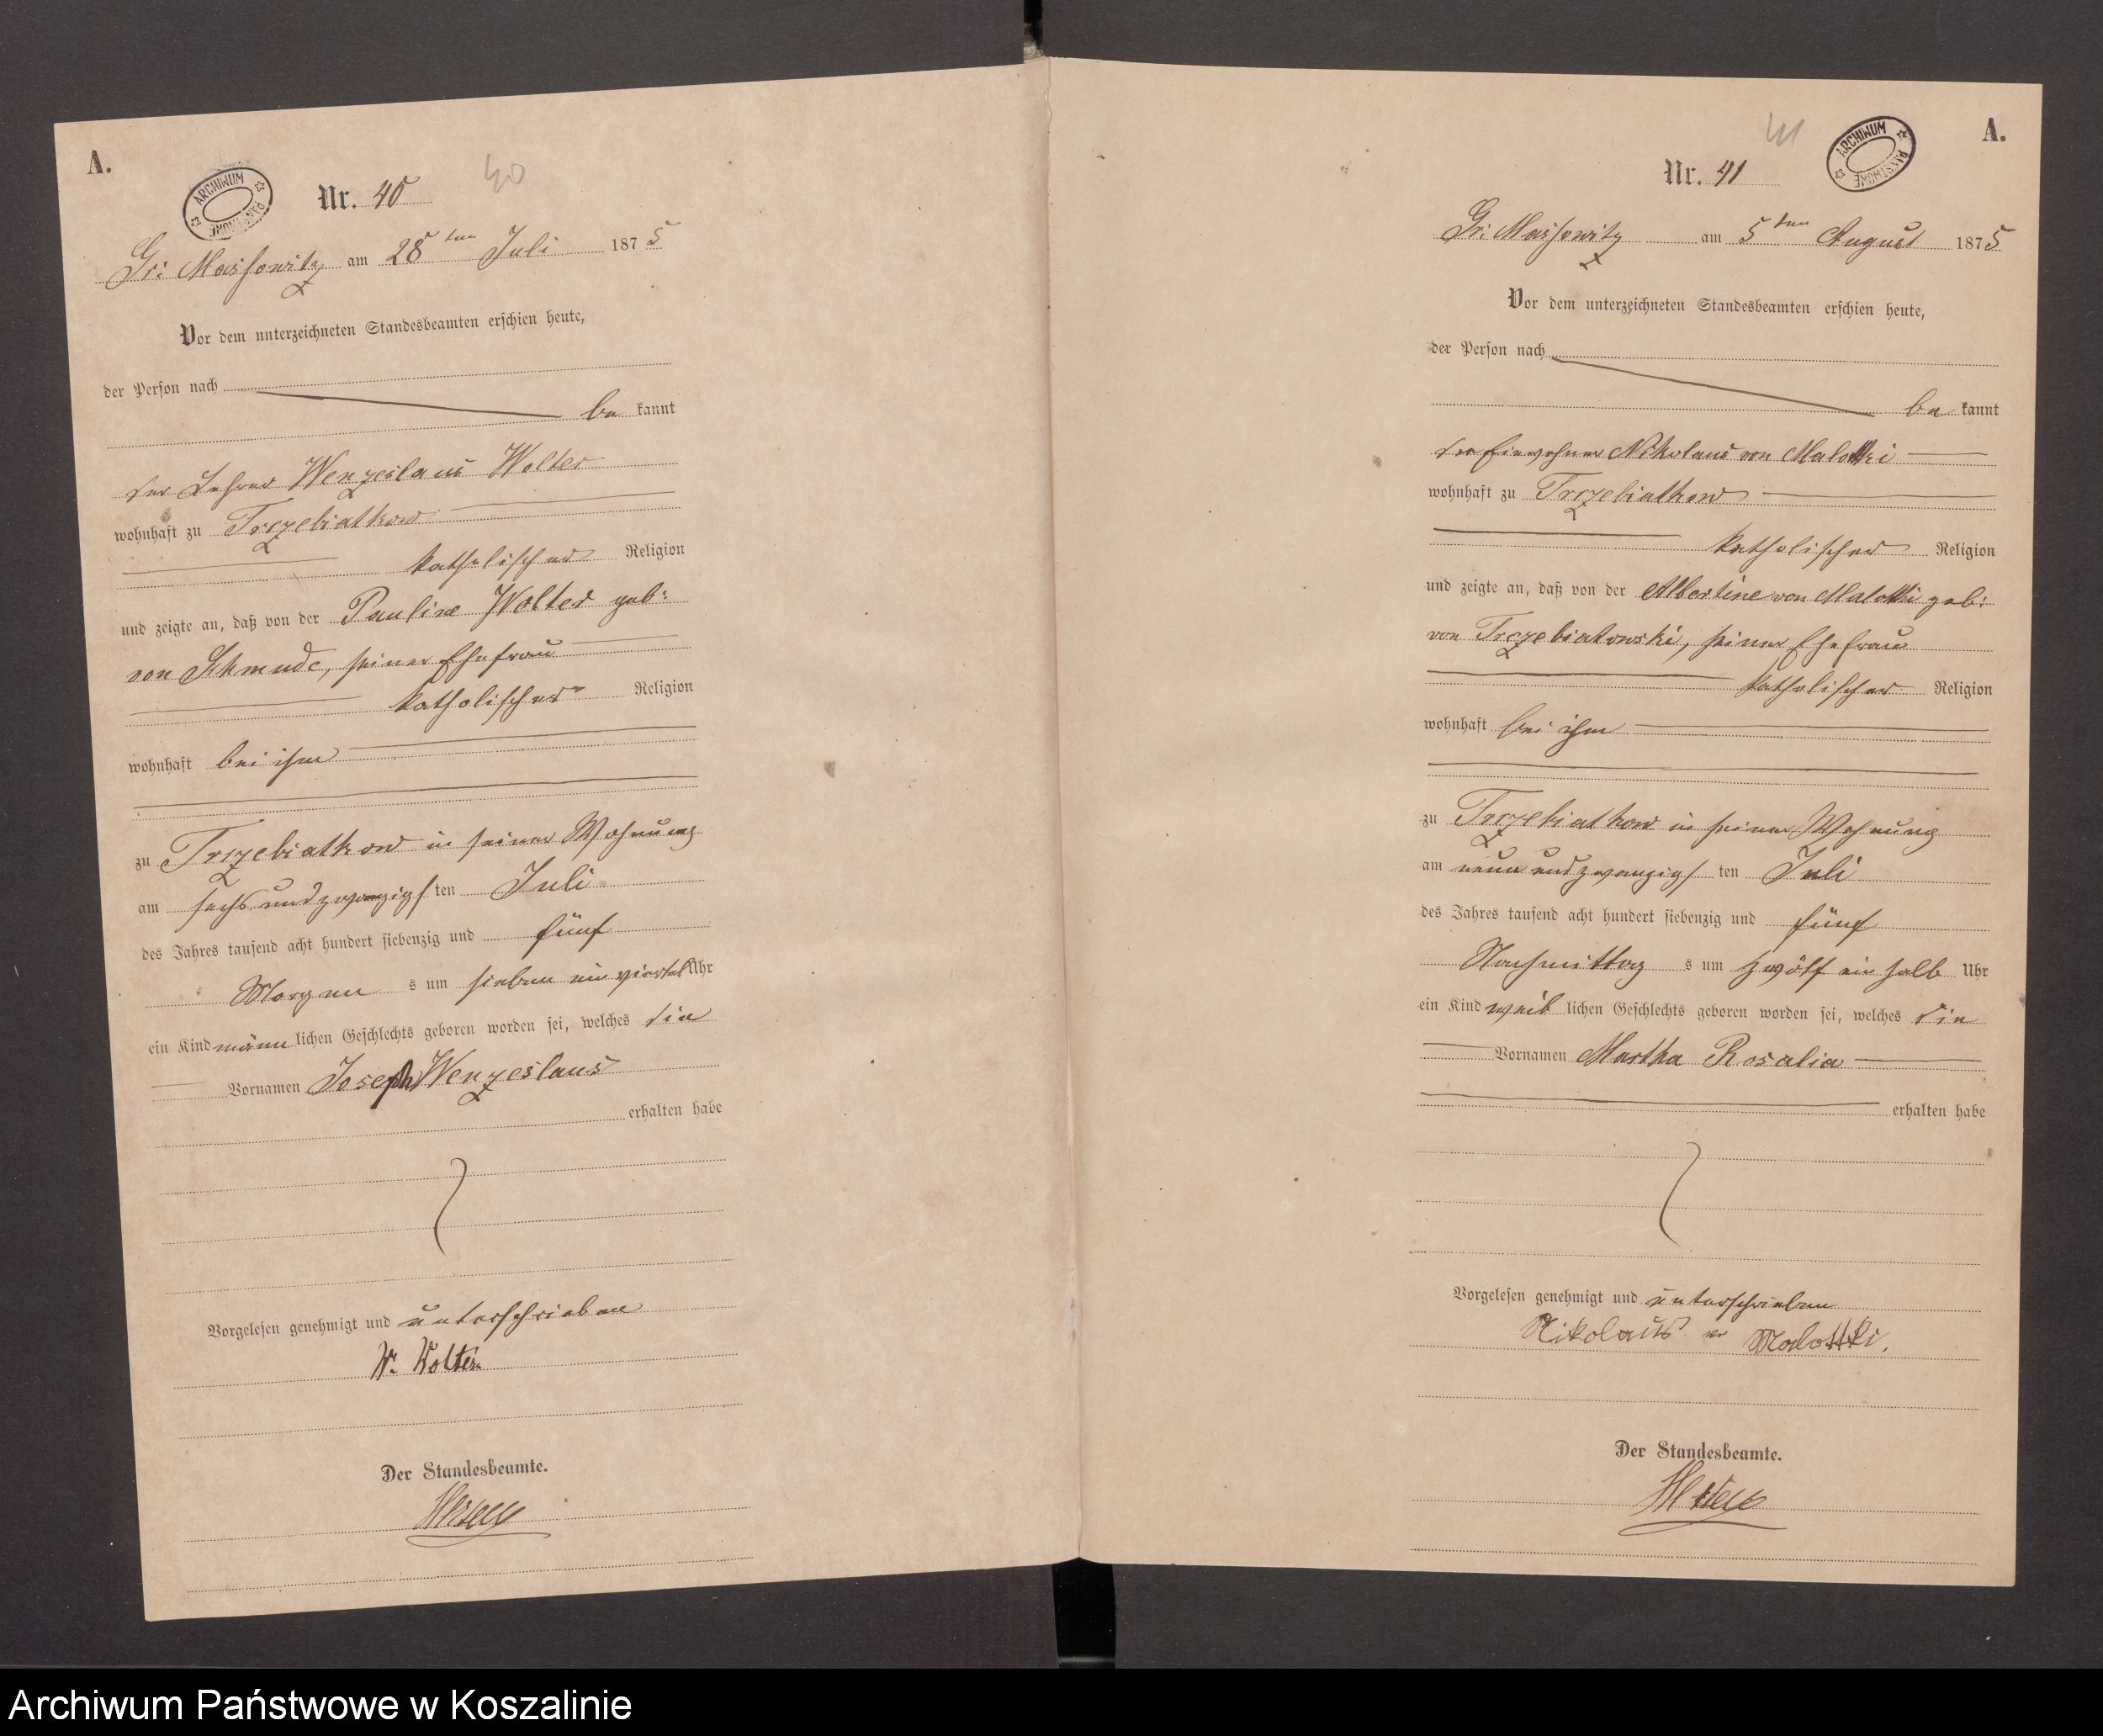 A.
ARCHIWUM PAŃSTWOWE
Nr. 40
40
Gr: Massowitz am 28ten Juli 1875
Vor dem unterzeichneten Standesbeamten erschien heute,
der Person nach
be kannt
der Lehrer Wenzeslaus Wolter
wohnhaft zu Trzebiatkow
katholischer Religion
und zeigte an, daß von der Pauline Wolter geb:
von Schmude, seiner Ehefrau
katholischer Religion
wohnhaft bei ihm
zu Trzebiatkow in seiner Wohnung
am sechs und zwanzigsten Juli
des Jahres tausend acht hundert siebenzig und fünf
Morgens um sieben ein viertel Uhr
ein Kind männlichen Geschlechts geboren worden sei, welches die
Vornamen Joseph Wenzeslaus
erhalten habe
Vorgelesen genehmigt und unterschrieben
W. Wolter
Der Standesbeamte.
A.
ARCHIWUM PAŃSTWOWE
41
Nr. 41
Gr: Massowitz am 5ten August 1875
Vor dem unterzeichneten Standesbeamten erschien heute,
der Person nach
be kannt
der Einwohner Nikolaus von Malottki
wohnhaft zu Trzebiatkow
katholischer Religion
und zeigte an, daß von der Albertine von Malottki geb:
von Trzebiatowski, seiner Ehefrau
katholischer Religion
wohnhaft bei ihm
zu Trzebiatkow in seiner Wohnung
am neun und zwanzigsten Juli
des Jahres tausend acht hundert siebenzig und fünf
Nachmittags um zwölf ein halb Uhr
ein Kind weiblichen Geschlechts geboren worden sei, welches die
Vornamen Martha Rosalia
erhalten habe
Vorgelesen genehmigt und unterschrieben
Nikolaus von Malottki.
Der Standesbeamte.
Archiwum Państwowe w Koszalinie